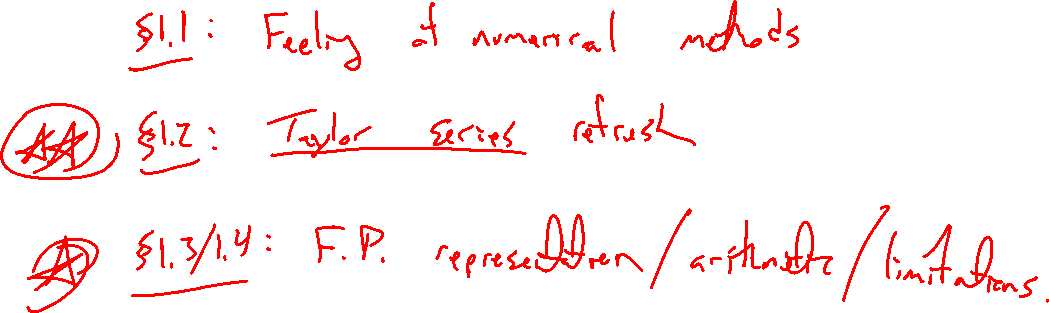 §1.1: Feeling of numerical methods
§1.2: Taylor series refresh
§1.3/1.4: F.P. representation/arithmetic/limitations.